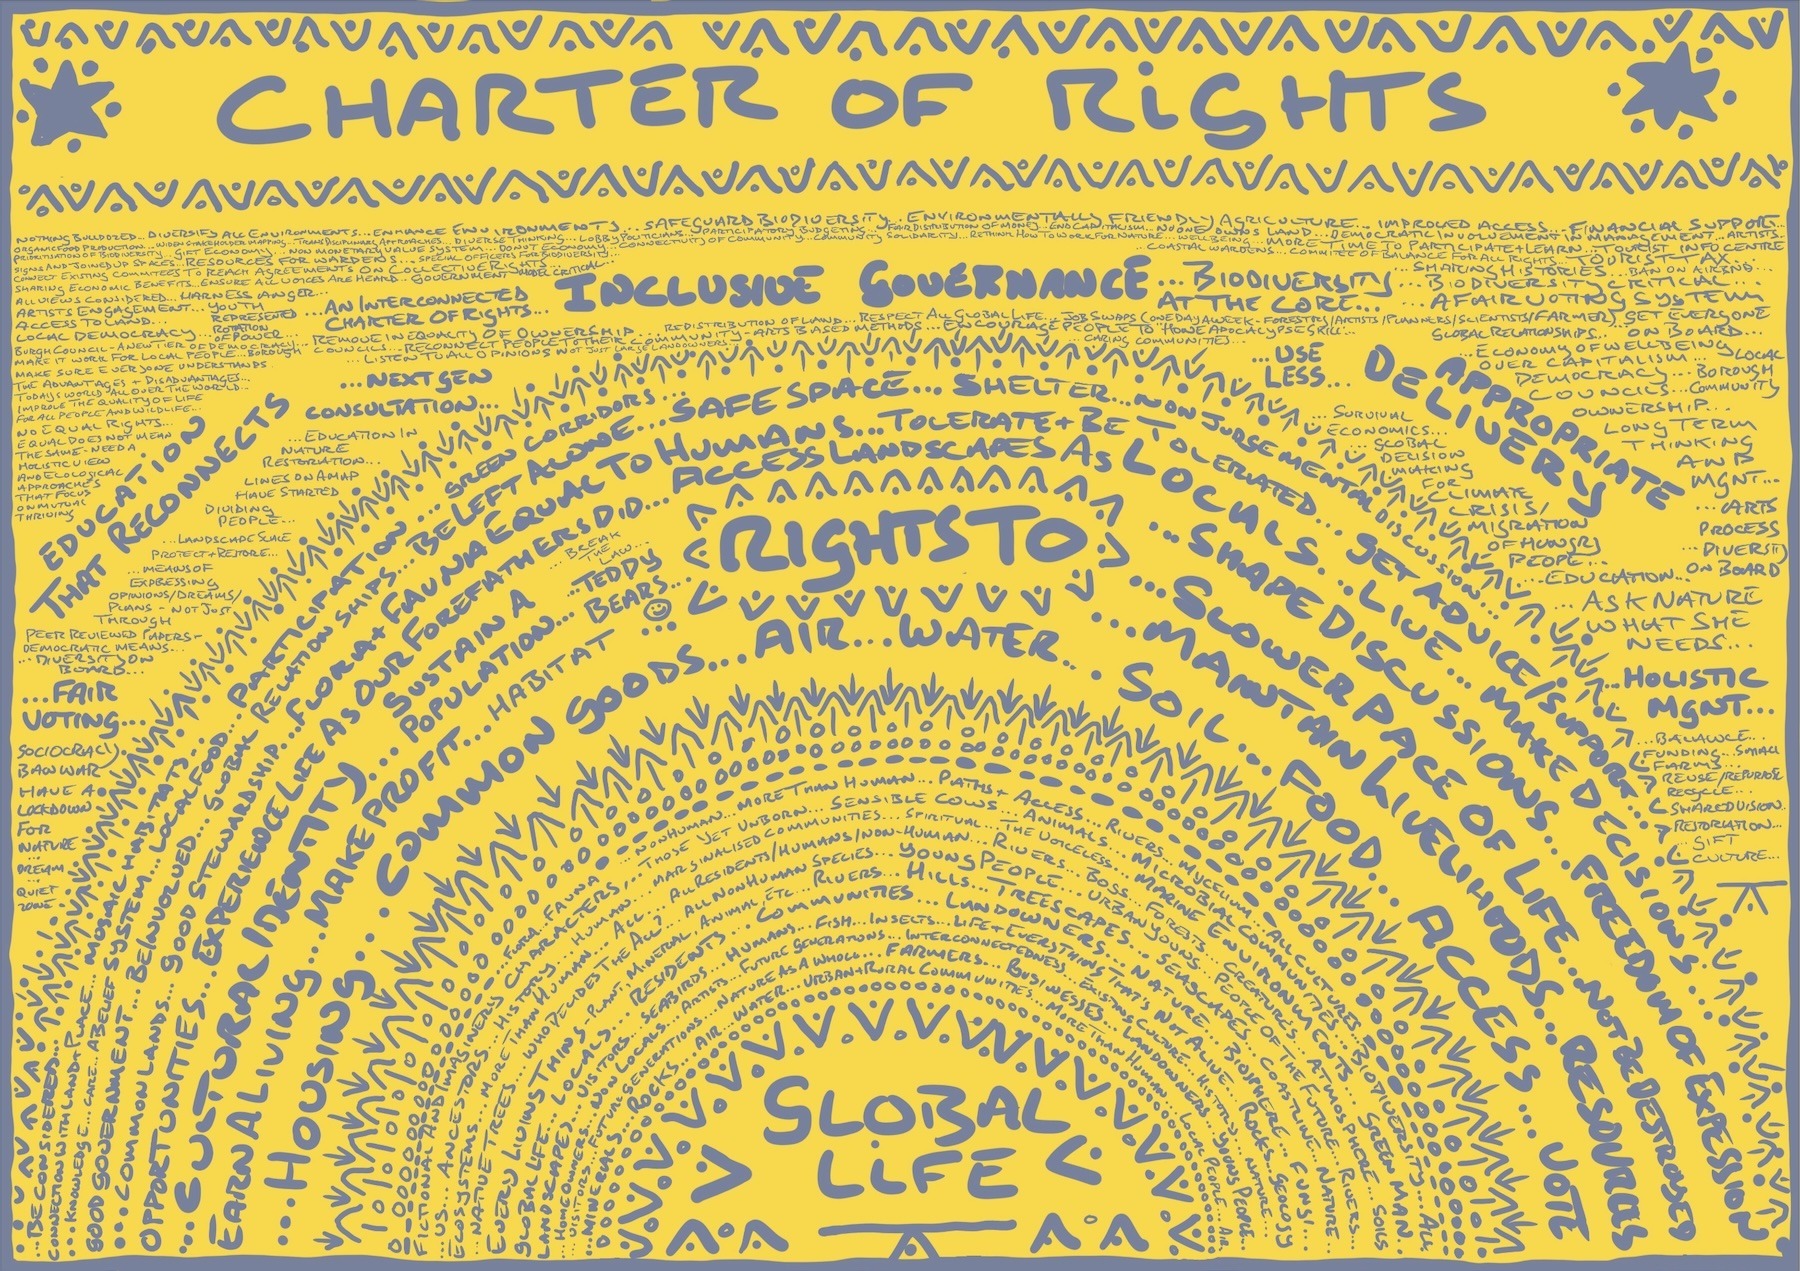 CHARTER OF RIGHTS
NOTHING BULLDOZED... DIVERSIFY ALL ENVIRONMENTS... ENHANCE ENVIRONMENTS... SAFEGUARD BIODIVERSITY... ENVIRONMENTALLY FRIENDLY AGRICULTURE... IMPROVED ACCESS + FINANCIAL SUPPORT...
ORGANIC FOOD PRODUCTION... WIDEN STAKEHOLDER MAPPING... TRANSDISCIPLINARY APPROACHES... DIVERSE THINKING... LOBBY POLITICIANS... PARTICIPATORY BUDGETING... FAIR DISTRIBUTION OF MONEY... END CAPITALISM... NO ONE OWNS LAND... DEMOCRATIC INVOLVEMENT IN MANAGEMENT... ARTISTS...
PRIORITISATION OF BIODIVERSITY... GIFT ECONOMY... NON MONETARY VALUE SYSTEM... DONUT ECONOMY... CONNECTIVITY OF COMMUNITY... COMMUNITY SOLIDARITY... RETHINK HOW TO WORK FOR NATURE... WELLBEING... MORE TIME TO PARTICIPATE + LEARN... TOURIST INFO CENTRE
SIGNS AND JOINED UP SPACES... RESOURCES FOR WARDENS... SPECIAL OFFICERS FOR BIODIVERSITY...
...COASTAL WARDENS... COMMITTEE OF BALANCE FOR ALL RIGHTS... TOURIST TAX...
CONNECT EXISTING COMMITTEES TO REACH AGREEMENTS ON COLLECTIVE RIGHTS...
SHARING ECONOMIC BENEFITS... ENSURE ALL VOICES ARE HEARD... GOVERNMENT MODEL CRITICAL...
ALL VIEWS CONSIDERED... HARNESS ANGER...
ARTISTS ENGAGEMENT... YOUTH REPRESENTED
ACCESS TO LAND...
LOCAL DEMOCRACY... ROTATION OF POWER
BURGH COUNCIL - A NEW TIER OF DEMOCRACY...
MAKE IT WORK FOR LOCAL PEOPLE... BOROUGH COUNCILS... RECONNECT PEOPLE TO THEIR COMMUNITY - ARTS BASED METHODS... ENCOURAGE PEOPLE TO "HOME APOCALYPSE SKILL"...
MAKE SURE EVERYONE UNDERSTANDS
...AN INTERCONNECTED
CHARTER OF RIGHTS...
INCLUSIVE GOVERNANCE
...BIODIVERSITY
AT THE CORE...
...SHARING HISTORIES... BAN ON AIRBNB...
BIODIVERSITY CRITICAL...
A FAIR VOTING SYSTEM
REMOVE INEQUALITY OF OWNERSHIP... REDISTRIBUTION OF LAND... RESPECT ALL GLOBAL LIFE... JOB SWAPS (ONE DAY A WEEK - FORESTRY/ARTISTS/PLANNERS/SCIENTISTS/FARMER) GET EVERYONE ON BOARD...
GLOBAL RELATIONSHIPS...
...LISTEN TO ALL OPINIONS NOT JUST LARGE LANDOWNERS...
...CARING COMMUNITIES...
THE ADVANTAGES + DISADVANTAGES...
TODAYS WORLD - ALL OVER THE WORLD...
IMPROVE THE QUALITY OF LIFE
FOR ALL PEOPLE AND WILDLIFE...
NO EQUAL RIGHTS...
EQUAL DOES NOT MEAN
THE SAME - NEED A
HOLISTIC VIEW
AND ECOLOGICAL
APPROACHES
THAT FOCUS
ON MUTUAL
THRIVING
...NEXT GEN
CONSULTATION...
EDUCATION
THAT RECONNECTS
...EDUCATION IN
NATURE
RESTORATION...
LINES ON A MAP
HAVE STARTED
DIVIDING
PEOPLE...
...LANDSCAPE SCALE
PROTECT + RESTORE...
...MEANS OF
EXPRESSING
OPINIONS/DREAMS/
PLANS - NOT JUST
THROUGH
PEER REVIEWED PAPERS -
DEMOCRATIC MEANS...
...DIVERSITY ON
BOARD...
...FAIR
VOTING...
SOCIOCRACY
BAN WAR
HAVE A
LOCKDOWN
FOR
NATURE
...
DREAM
...
QUIET
ZONE
...USE
LESS...
APPROPRIATE
DELIVERY
...ECONOMY OF WELLBEING
OVER CAPITALISM... LOCAL
DEMOCRACY... BOROUGH
COUNCILS... COMMUNITY
OWNERSHIP...
LONG TERM
THINKING
AND
MGNT...
...SURVIVAL
ECONOMICS...
...GLOBAL
DECISION
MAKING
FOR
CLIMATE
CRISIS/
MIGRATION
OF HUNGRY
PEOPLE...
...ARTS
PROCESS
...DIVERSITY
ON BOARD
...EDUCATION...
...ASK NATURE
WHAT SHE
NEEDS...
...HOLISTIC
MGNT...
...BALANCE...
FUNDING... SMALL
FARMS...
REUSE/REPURPOSE
RECYCLE...
SHARED VISION.
RESTORATION...
...GIFT
CULTURE...
RIGHTS TO
...BE CONSIDERED... MOSAIC HABITATS... LOCAL FOOD... PARTICIPATION... GREEN CORRIDORS...
CONNECTION WITH LAND + PLACE...
...KNOWLEDGE... CARE... A BELIEF SYSTEM...
GOOD GOVERNMENT... BE INVOLVED... GLOBAL RELATIONSHIPS... BE LEFT ALONE... SAFE SPACE... SHELTER... NON JUDGEMENTAL DISCUSSION...
...COMMON LANDS... GOOD STEWARDSHIP... FLORA + FAUNA EQUAL TO HUMANS... TOLERATE + BE TOLERATED... GET ADVICE/SUPPORT...
OPPORTUNITIES... EXPERIENCE LIFE AS OUR FOREFATHERS DID... ACCESS LANDSCAPES AS LOCALS... LIVE... MAKE DECISIONS... FREEDOM OF EXPRESSION
...CULTURAL IDENTITY... SUSTAIN A POPULATION...
BREAK
THE
LAW...
...TEDDY
BEARS...
...SHAPE DISCUSSIONS... NOT BE DESTROYED
EARN A LIVING... MAKE PROFIT... HABITAT
...SLOWER PACE OF LIFE... RESOURCES
...MAINTAIN LIVELIHOODS... VOTE
...HOUSING... COMMON GOODS... AIR... WATER... SOIL... FOOD... ACCESS
FICTIONAL AND IMAGINERY CHARACTERS... NONHUMAN... MORE THAN HUMAN... PATHS + ACCESS... RIVERS... MYCELIUM... ALL CULTURES... BIODIVERSITY... ALL
...FLORA... FAUNA
...US... ANCESTORS... HISTORY... HUMAN... THOSE YET UNBORN... SENSIBLE COWS... ANIMALS... MICROBIAL COMMUNITIES... GREEN MAN...
ECOSYSTEMS... MORE THAN HUMAN... ALL... MARGINALISED COMMUNITIES... SPIRITUAL... THE VOICELESS... MARINE ENVIRONMENTS... ATMOSPHERE... SOILS
...NATIVE TREES... WHO DECIDES THE ALL?... ALL RESIDENTS/HUMANS/NON-HUMAN... RIVERS... BOSS... FORESTS... CREATURES...
EVERY LIVING THING... PLANT, MINERAL, ANIMAL, ETC... ALL NON HUMAN SPECIES... YOUNG PEOPLE... URBAN YOUNG PEOPLE OF THE FUTURE... RIVERS...
GLOBAL LIFE... LOCALS... RESIDENTS... RIVERS... HILLS... TREESCAPES... SEASCAPES... COASTLINE... NATURE...
LANDSCAPES... VISITORS... SEABIRDS... COMMUNITIES... LANDOWNERS... NATURE... BIOSPHERE... FUNGI...
...HOMEOWNERS... NON LOCALS... HUMANS... FISH... INSECTS... LIFE + EVERYTHING THAT'S NOT ALIVE... ROCKS... GEOLOGY
...VISITORS... FUTURE GENERATIONS... ARTISTS... FUTURE GENERATIONS... INTERCONNECTEDNESS... EXISTING CULTURE... HISTORY... NATURE...
...MINERALS... ROCKS... NATURE AS A WHOLE... FARMERS... BUSINESSES... LANDOWNERS... YOUNG PEOPLE...
...AIR... WATER... URBAN + RURAL COMMUNITIES... MORE THAN HUMAN... LOCAL PEOPLE... AIR
GLOBAL
LIFE